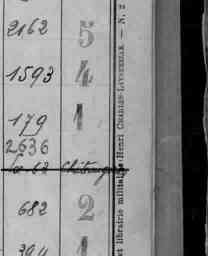 2162 5
1593 4
179 1
2636
682 2
394 1
et librairie militaire Henri CHARLES-LAVAUZELLE. — N. 2